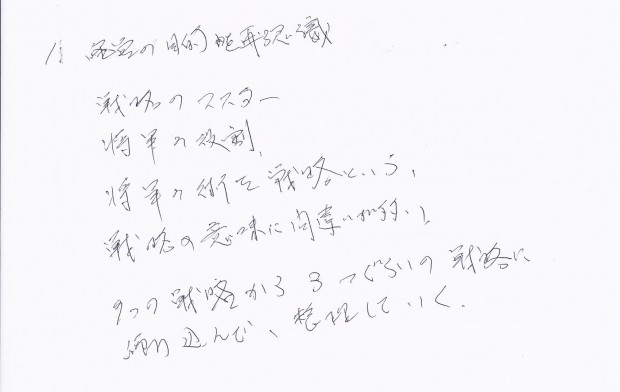 の目的を再認識
戦略のマスター
将軍の役割、
将軍の術を戦略という、
戦略の意味に間違いが多い、
9つの戦略から3つぐらいの戦略に
絞り込んで、整理していく.